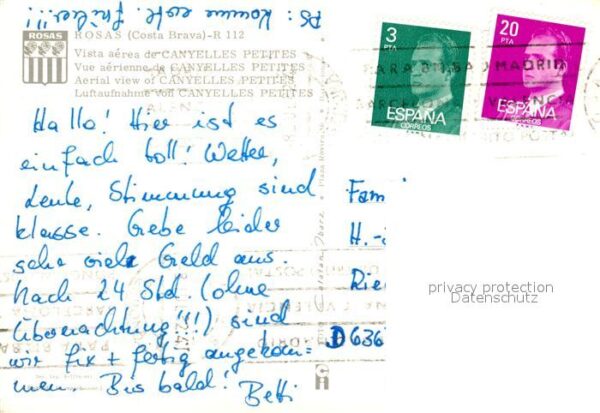 PS: Komme erst früher!!!
ROSAS
ROSAS (Costa Brava)-R 112
Vista aérea de CANYELLES PETITES
Vue aérienne de CANYELLES PETITES
Aerial view of CANYELLES PETITES
Luftaufnahme von CANYELLES PETITES
Hallo! Hier ist es
einfach toll! Wetter,
Leute, Stimmung sind
klasse. Gebe leider
sehr viel Geld aus.
Nach 24 Std. (ohne
Übernachtung!!!) sind
wir fix + fertig angekom=
men. Bis bald!
Betti
3
PTA
ESPAÑA
CORREOS
20
PTA
ESPAÑA
CORREOS
PARA BILBAO MADRID
Fam
H.-
Rie
D 636
privacy protection
Datenschutz